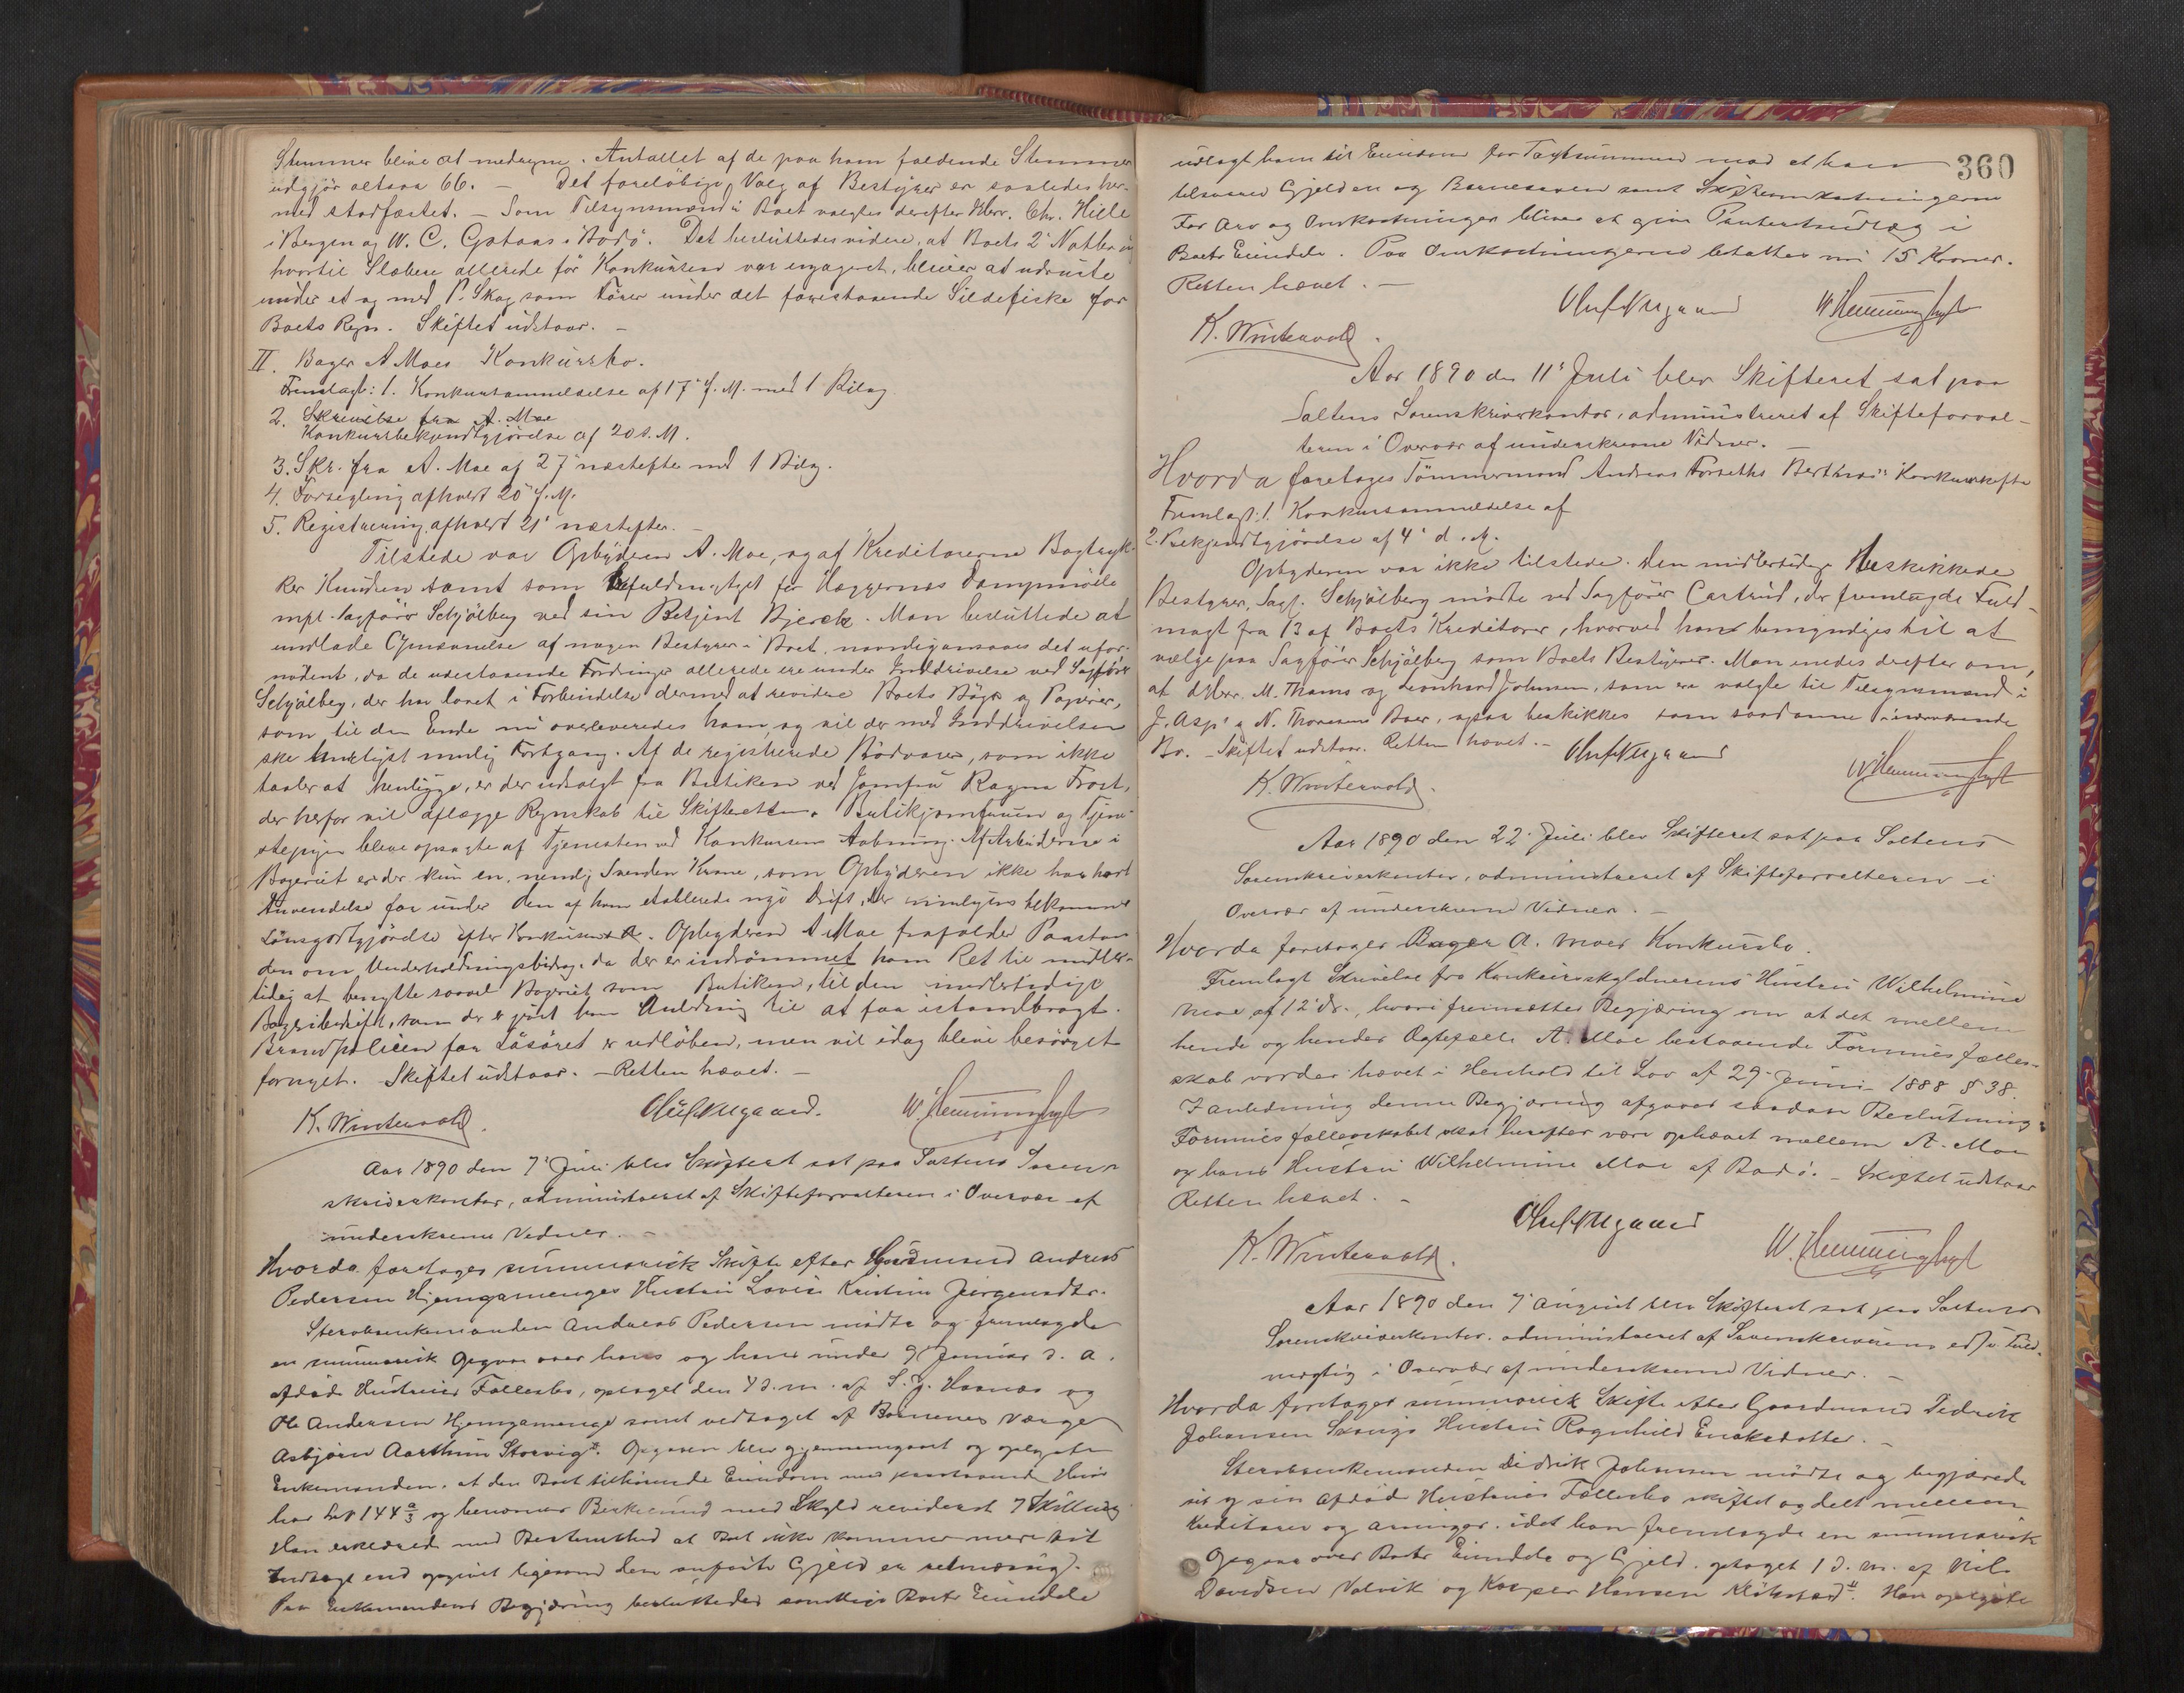 Stemmer blive at medregne. Antallet af de paa ham faldende Stemmer
udgjør altsaa 66. – Det foreløbige Valg af Bestyrer er saaledes her-
med stadfæstet. – Som Tilsynsmænd i Boet valgtes derefter Hr. Chr. Hille
i Bergen og W. C. i Bodø. Det besluttedes videre, at Boets 2 Notbrug
hvortil Slæbere allerede før Konkursen var engageret, bliver at udruste
under et og med P. Skog som Fører under det forestaaende Sildefiske for
Boets Regn. Skiftet udstaar. –
II. Bager A Moes Konkursbo.
Fremlagt: 1. Konkursanmeldelse af 17' f. M. med 1 Bilag
2. Skrivelse fra A. Moe
Konkursbekjendtgjørelse af 20 s. M.
3. Skr. fra A. Moe af 27' næstefter med 1 Bilag.
4. Forsegling afholdt 20' f. M.
5. Registrering afholdt 21' næstefter. –
Tilstede var Opbyderen A. Moe, og af Kreditorerne Bogtryk-
ker Knudsen samt som Befuldmægtiget for Vaggernes Dampmølle
mpl. Sagfører Schjølberg ved sin Betjent Bjerck. Man besluttede at
undlade Opnævnelse af nogen Bestyrer i Boet, navnlig ansaaes det ufor-
nødent, da de udestaaende Fordringer allerede ere under Inddrivelse ved Sagfører
Schjølberg, der har lovet i Forbindelse dermed at revidere Boets Bøger og Papirer,
som til den Ende nu overleveredes ham, og vil der med Inddrivelsen
ske hurtigst mulig Fortgang. Af de registrerede Brødvarer, som ikke
taaler at henligge, er der udsolgt fra Butiken ved Jomfru Ragna Frost,
der herfor vil aflægge Regnskab til Skifteretten. Butikjomfruen og Tjene-
stepigen bleve opsagte af Tjenesten ved Konkursens Aabning. Af Arbeiderne i
Bageriet er der kun en, nemlig Svenden Krane, som Opbyderen ikke har havt
Anvendelse for under den af ham etablerede nye Drift, der
Lønsgodtgjørelse efter Konkursen. Opbyderen A Moe frafalder Paastan-
den om Underholdningsbidrag, da der er indrømmet ham Ret til midler-
tidig at benytte saavel Bageriet som Butiken, til den midlertidige
Bageribedrift, som der er givet ham Anledning til at faa istandbragt.
Brandpolicen for Løsøret er udløben, men vil idag blive besørget
fornyet. Skiftet udstaar. – Retten hævet. –
K. Wintervold.
W. Henningsen
Aar 1890 den 7' Juli blev Skifteret sat paa Saltens Soren-
skriverkontor, administreret af Skifteforvalteren i Overvær af
underskrevne Vidner. –
Hvorda foretoges summarisk Skifte efter Gaardmand Andreas
Pedersen Hjemgamenges Hustru Lovise Kristine Jørgensdtr.
Sterboenkemanden Andreas Pedersen mødte og fremlagde
en summarisk Opgave over hans og hans under 9 Januar d. A.
afdøde Hustrues Fællesbo, optaget den 4 d. m. af og
Ole Andersen Hjemgamenge samt vedtaget af Børnenes Værge
Asbjørn Aarthun Storvig. Opgaven blev gjennemgaaet og oplyste
Enkemanden, at den Boet tilhørende Eiendom med paastaaende Huse
har Lnr 144 a/3 og benævnes Birkelund med Skyld revideret 7 Skilling
Han erklærede med Bestemthed at Boet ikke kommer mere til
Indtægt end opgivet ligesom den anførte Gjeld er retmæssig.
Paa Enkemandens Begjæring besluttedes samtlige Boets Eiendele
360
udlagt ham til Eiendom for Taxtsummen mod at han
tilsvarer Gjelden og Børnearven samt Skifteomkostningerne
For Arv og Omkostninger bliver at give Panteretsudlæg i
Boets Eiendele. Paa Omkostningerne betaltes nu 15 Kroner.
Retten hævet. –
K. Wintervold.
W Henningsen
Aar 1890 den 11' Juli blev Skifteret sat paa
Saltens Sorenskriverkontor, administreret af Skifteforval-
teren i Overvær af underskrevne Vidner. –
Hvorda foretoges Tømmermand Andreas Forseths Konkursskifte
Fremlagt: 1. Konkursanmeldelse af
2. Bekjendtgjørelse af 4' d. M.
Opbyderen var ikke tilstede. Den midlertidige beskikkede
Bestyrer, Sagf. Schjølberg mødte ved Sagfører Castrud, der fremlagde Fuld-
magt fra 13 af Boets Kreditorer, hvorved han bemyndiges til at
vælge paa Sagfører Schjølberg som Boets Bestyrer. Man enedes derefter om,
at Hrr. M. Thams og Leonhard Johnsen, som ere valgte til Tilsynsmænd i
J. Asp's og N. Thoresens Boer, ogsaa beskikkes som saadanne i nærværende
Bo. – Skiftet udstaar. Retten hævet. –
K. Wintervold.
W Henningsen
Aar 1890 den 22' Juli blev Skifteret sat paa Saltens
Sorenskriverkontor, administreret af Skifteforvalteren i
Overvær af underskrevne Vidner. –
Hvorda foretoges Bager A. Moes Konkursbo.
Fremlagt Skrivelse fra Konkursskyldnerens Hustru Wilhelmine
Moe af 12' ds., hvori fremsættes Begjæring om at det mellem
hende og hendes Ægtefælle A. Moe bestaaende Formuesfælles-
skab vorder hævet i Henhold til Lov af 29 Juni 1888 § 38.
I Anledning denne Begjæring afgaves saadan Beslutning:
Formuesfællesskabet skal herefter være ophævet mellem A. Moe
og hans Hustru Wilhelmine Moe af Bodø. – Skiftet udstaar
Retten hævet. –
K. Wintervold.
W. Henningsen
Aar 1890 den 7' August blev Skifteret sat paa Saltens
Sorenskriverkontor, administreret af Sorenskriverens eds. Fuld-
mægtig i Overvær af underskrevne Vidner. –
Hvorda foretoges summarisk Skifte efter Gaardmand Didrik
Johansen Hustru Ragnhild Enoksdatter. –
Sterboenkemanden Didrik Johansen mødte og begjærede
sit og sin afdøde Hustrues Fællesbo skiftet og delt mellem
Kreditorer og Arvinger, idet han fremlagde en summarisk
Opgave over Boets Eiendele og Gjeld, optaget 1 d. m. af Nils
Davidsen Valvik og Kasper Hansen. Han oplyste